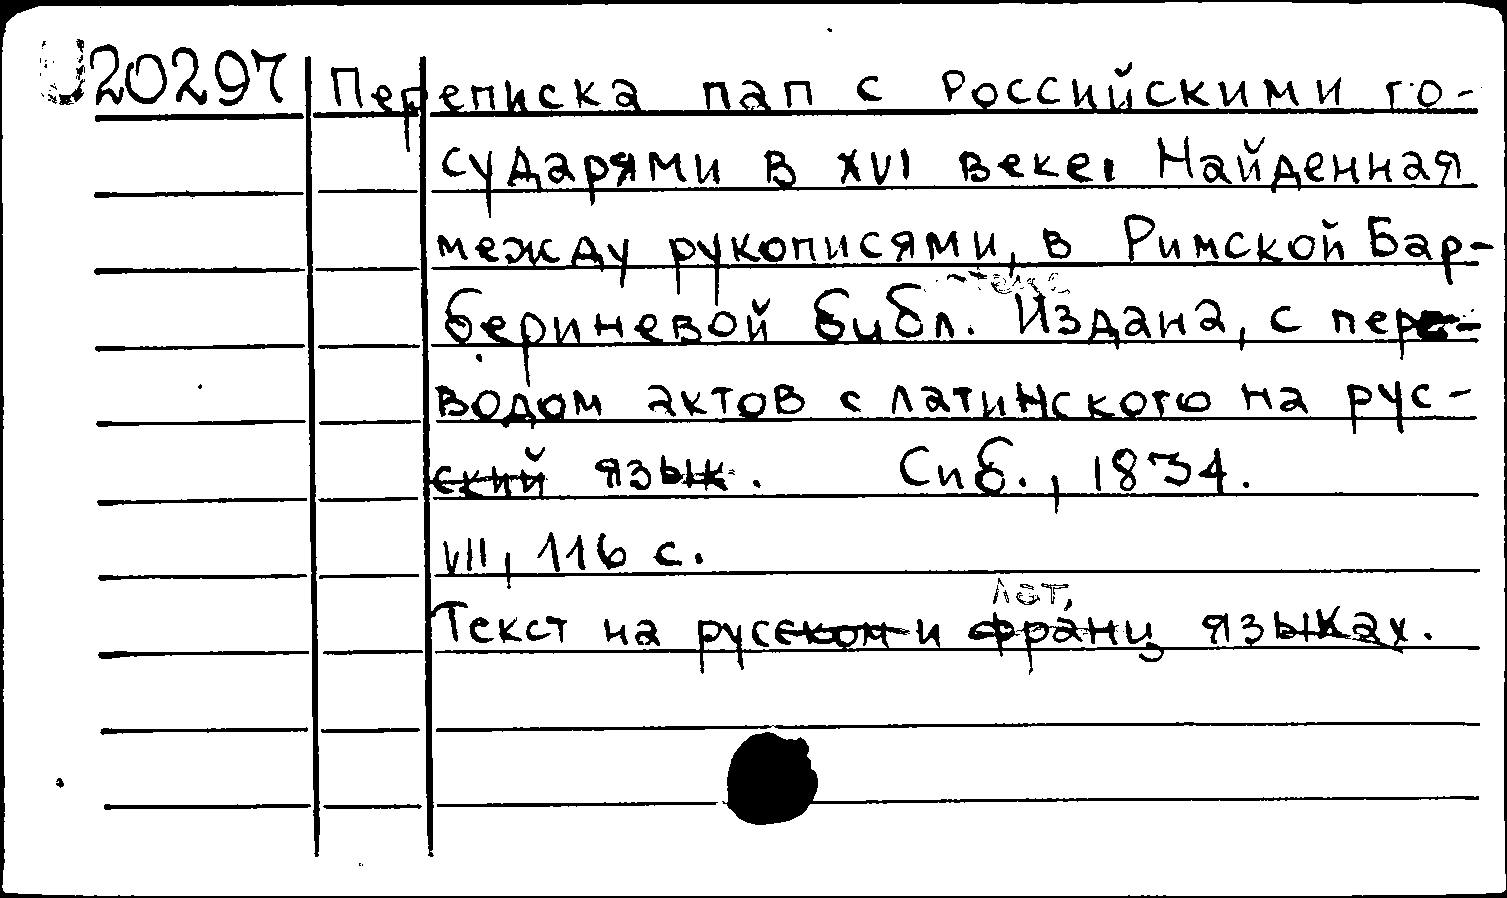 U20297 Переписка пап с Российскими го-
сударями в XVI веке. Найденная
между рукописями, в Римской Бар-
бериневой библ. Издана, с пере-
водом актов с латинского на рус-
ский язык. Спб., 1834.
VII, 116 с.
лат,
Текст на русском и франц языках.